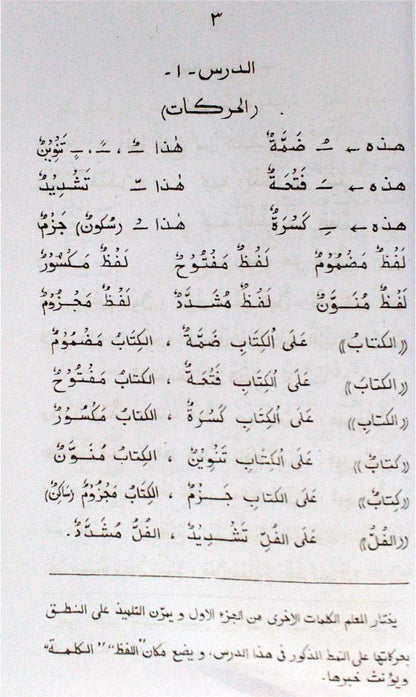 ٣
الدرس - ١ -
(الحركات)
هذه ← ــُـ ضَمَّةٌ    هٰذا ــٌـ ، ــًـ ، ــٍـ تَنْوِينٌ
هذه ← ــَـ فَتْحَةٌ    هٰذا ــّـ تَشْدِيدٌ
هذه ← ــِـ كَسْرَةٌ    هٰذا ــْـ (سُكُونٌ) جَزْمٌ
لَفْظٌ مَضْمُومٌ    لَفْظٌ مَفْتُوحٌ    لَفْظٌ مَكْسُورٌ
لَفْظٌ مُنَوَّنٌ    لَفْظٌ مُشَدَّدٌ    لَفْظٌ مَجْزُومٌ
((الكتابُ)) عَلَى الْكِتَابِ ضَمَّةٌ ، الكِتَابُ مَضْمُومٌ
((الكتابَ) عَلَى الْكِتَابِ فَتْحَةٌ ، الكِتَابُ مَفْتُوحٌ
((الكتابِ)) عَلَى الْكِتَابِ كَسْرَةٌ ، الكِتَابُ مَكْسُورٌ
((كتابٌ)) عَلَى الْكِتَابِ تَنْوِينٌ ، الكِتَابُ مُنَوَّنٌ
((كتابْ)) عَلَى الكِتَابِ جَزْمٌ ، الكِتَابُ مَجْزُومٌ (سَاكِنٌ)
((الفُلُّ)) عَلَى الفُلِّ تَشْدِيدٌ ، الفُلُّ مُشَدَّدٌ .
يختار المعلم الكلمات الاخرى من الجزء الاول و يمرّن التلميذ على النطق
بحركاتها على النمط المذكور في هذا الدرس، و يضع مكان "اللفظ" "الكلمة"
و يؤنث خبرها.